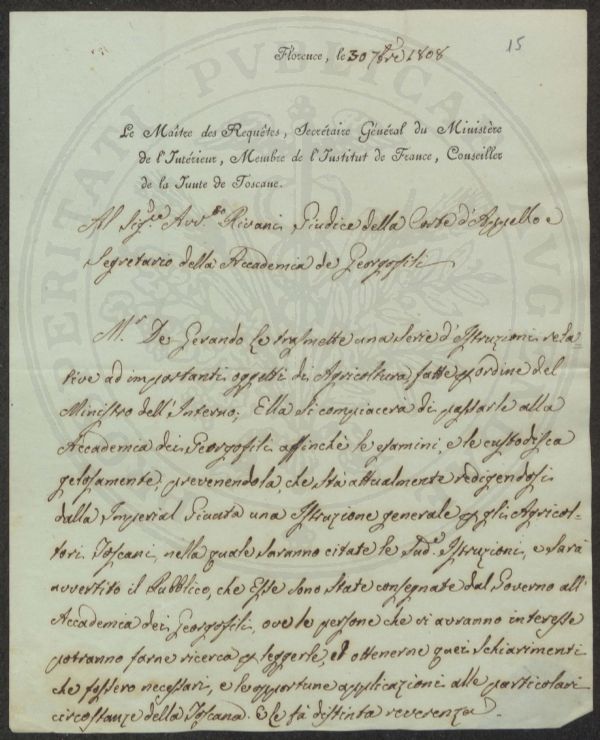 15
Florence, le 30 7bre 1808
Le Maître des Requêtes, Secrétaire Général du Ministère
de l'Intérieur, Membre de l'Institut de France, Conseiller
de la Junte de Toscane.
Al Sigre Avvto Rivani, Giudice della Corte d'Appello e
Segretario della Accademia de Georgofili
Mr. De Gerando Le trasmette una serie d'Istruzioni rela-
tive ad importanti oggetti di Agricoltura fatte p ordine del
Ministro dell'Interno; Ella si compiacerà di passarle alla
Accademia dei Georgofili affinchè le esamini, e le custodisca
gelosamente, prevenendola, che stà attualmente redigendosi
dalla Imperial Giunta una Istruzione generale p gli Agricol-
tori Toscani, nella quale saranno citate le Sude Istruzioni, e sarà
avvertito il Pubblico, che Esse sono state consegnate dal Governo all'
Accademia dei Georgofili, ove le persone che vi avranno interesse
potranno farne ricerca p leggerle, ed ottenerne quei schiarimenti
che fossero necessari, e le opportune applicazioni alle particolari
circostanze della Toscana. E le fà distinta reverenza.
PVBLICA